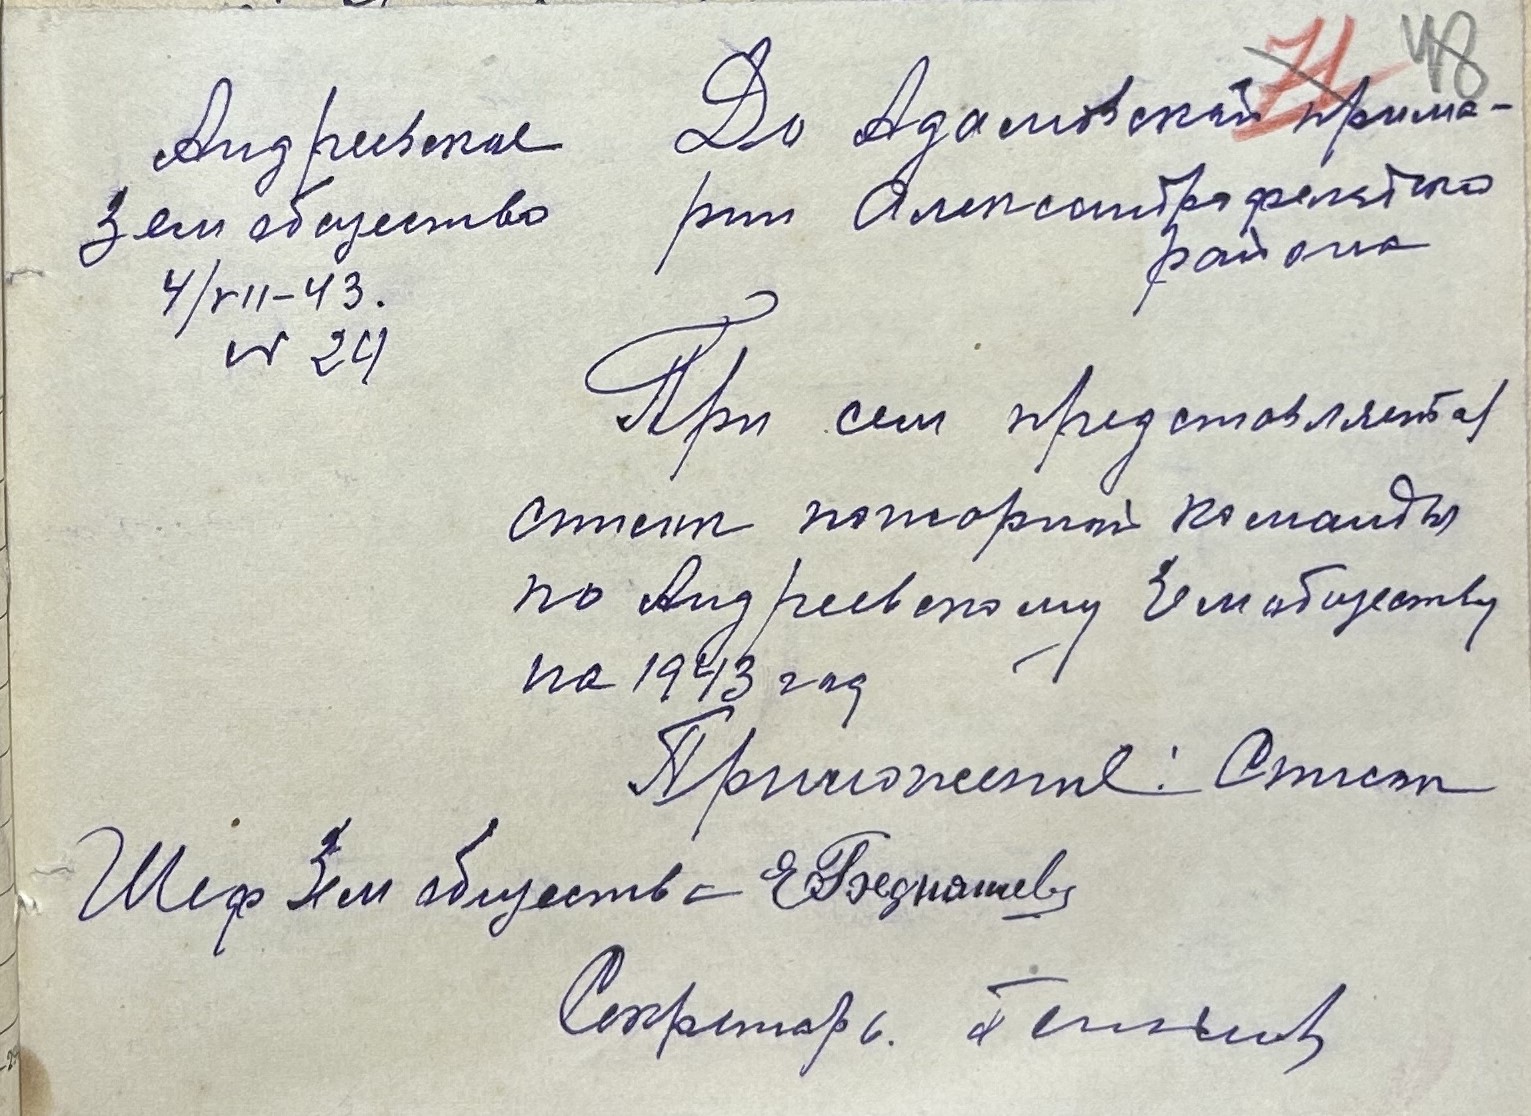 71 48
Андреевское
Земобщество
4/VII-43.
N 24
До Адамовской прима-
рии Александрфельдского
района
При сем представляется
список пожарной команды
по Андреевскому Земобществу
на 1943 год
Приложение: Список
Шеф Земобщества Е
Секретарь.